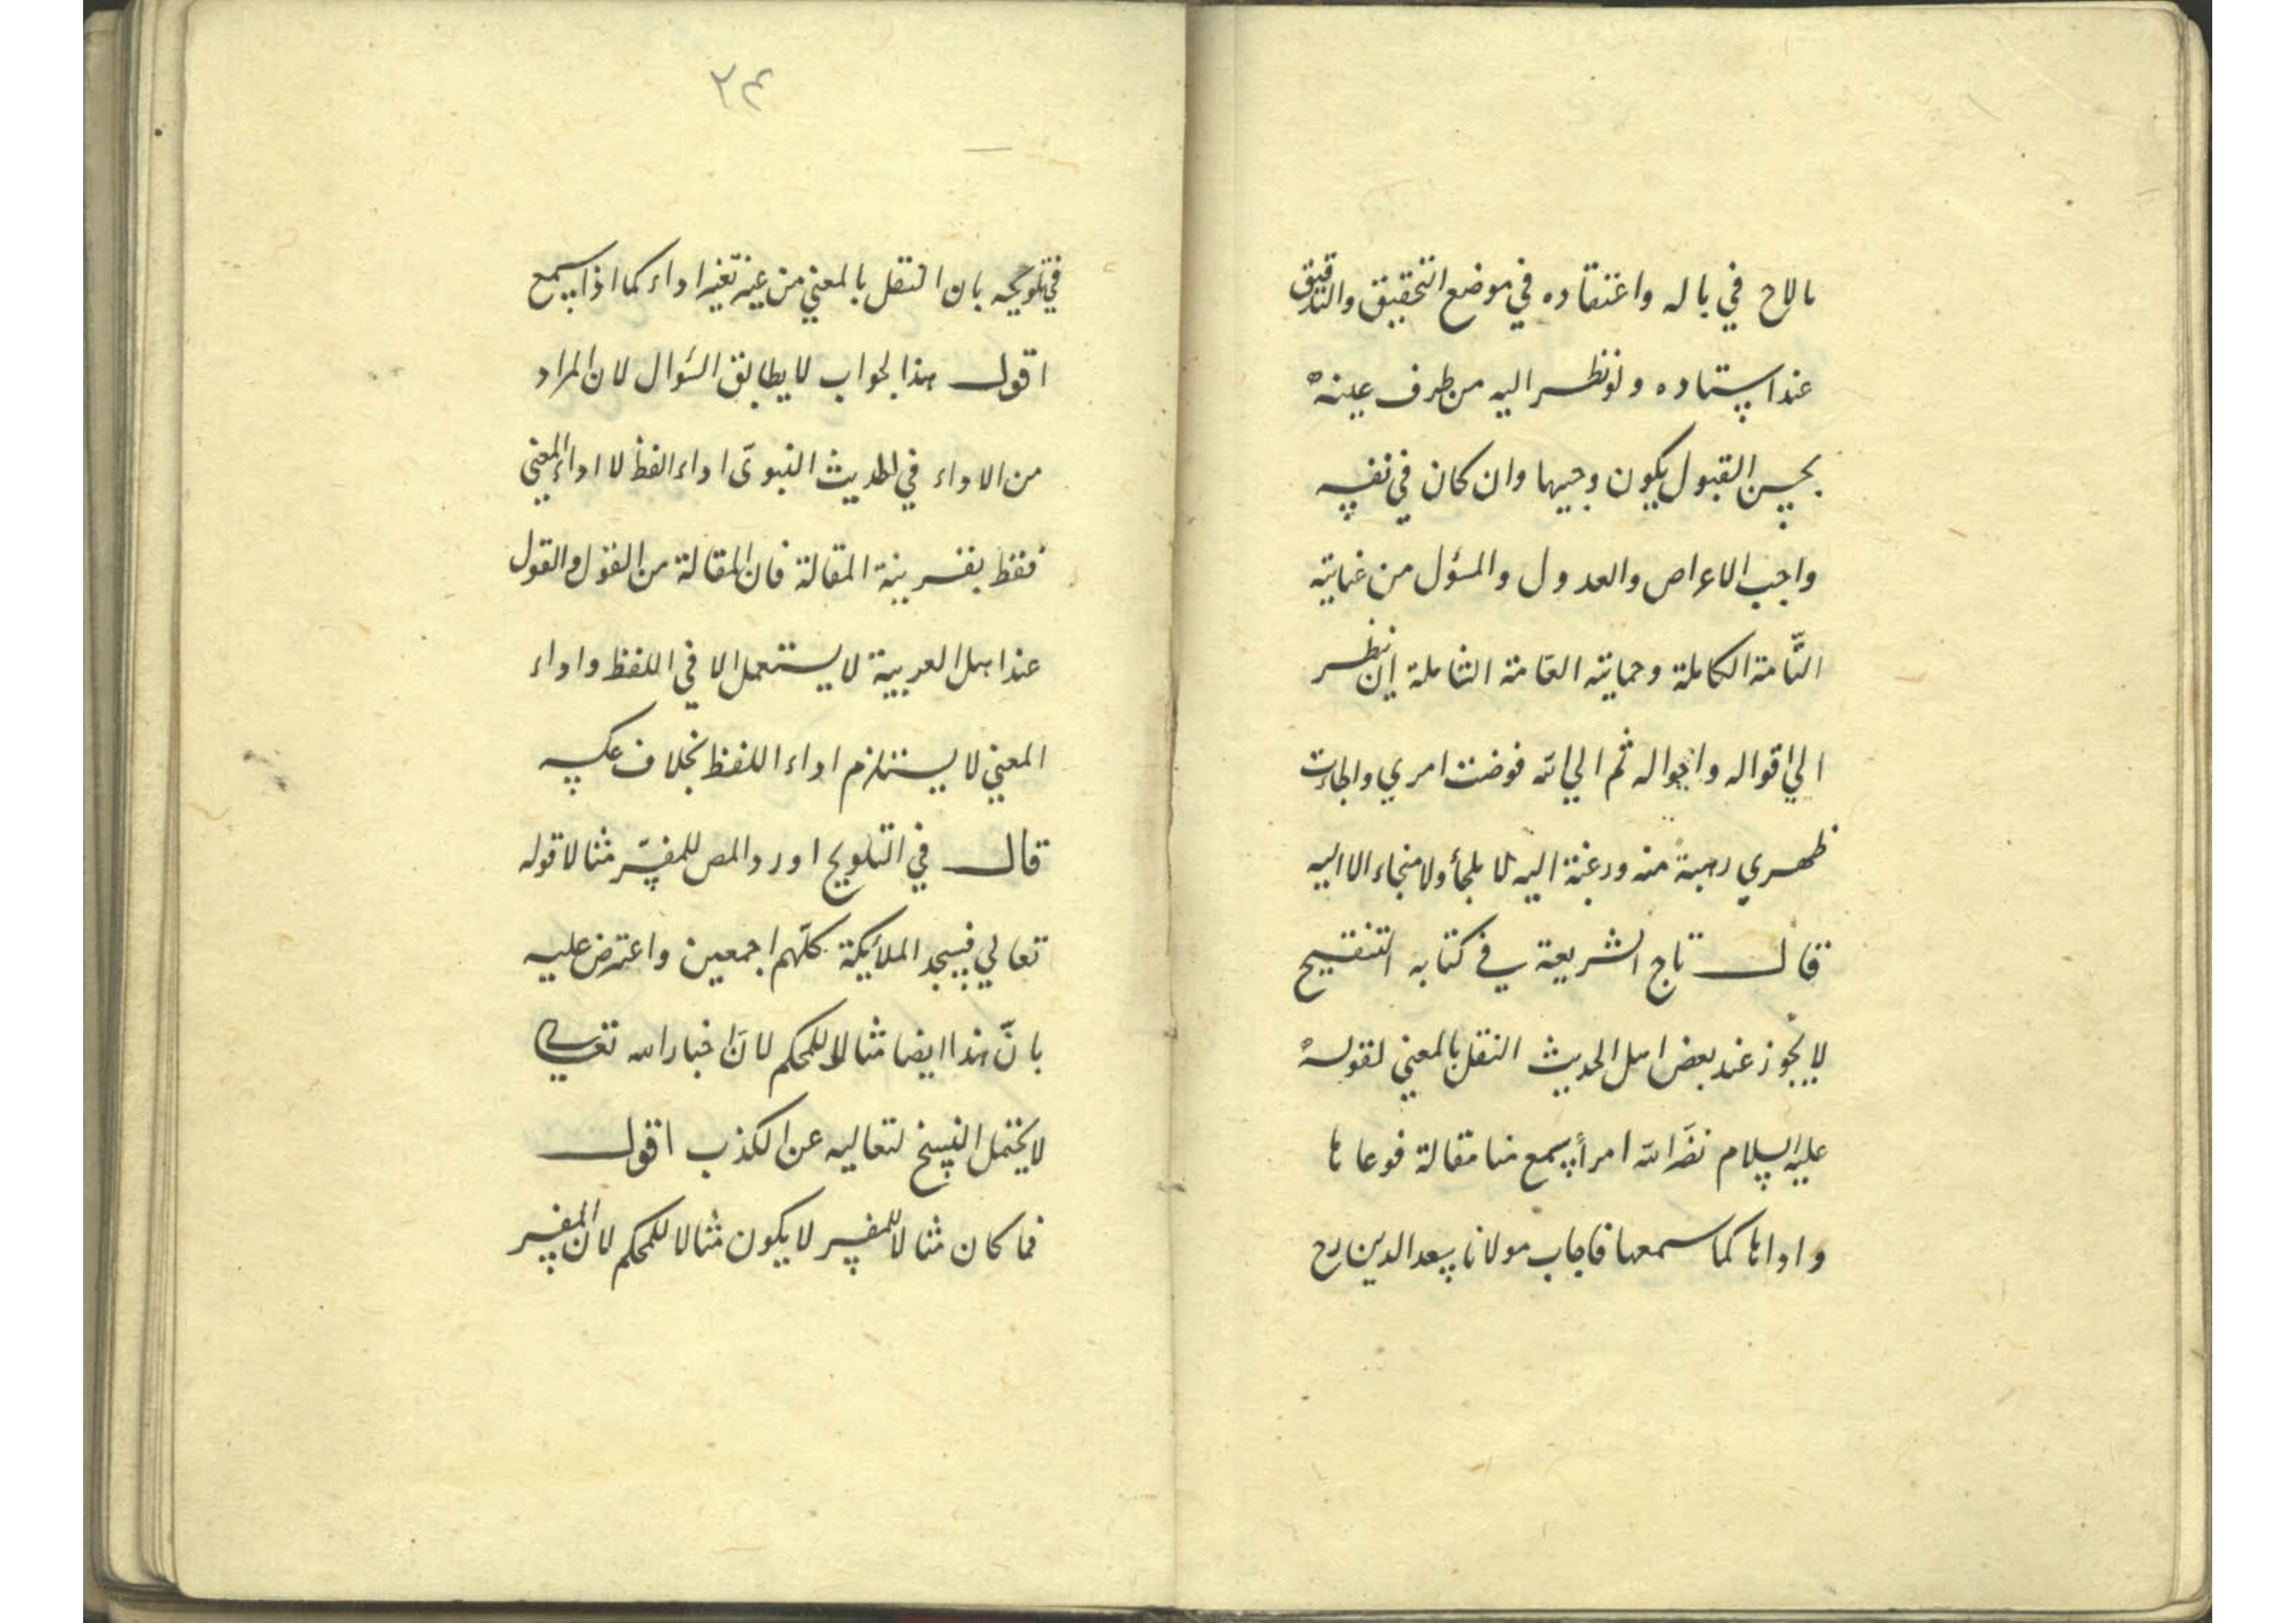 ما لاح في باله واعتقاده في موضع التحقيق والتدقيق
عند استاده ولو نظر اليه من طرف عينه
بحسن القبول يكون وجيها وان كان في نفسه
واجب الاعراص والعدول والمسؤل من غايته
التّامة الكاملة وحمايته العامة الشاملة ان نظر
الي اقواله واحواله ثم الي الله فوضت امري والجاءت
ظهري رهبة منه ورغبة اليه لا ملجأ ولا منجاء الا اليه
قال تاج الشريعة في كتابه التنقيح
لا يجوز عند بعض اهل الحديث النقل بالمعني لقوله
عليه السلام نضّر الله امرأ سمع منا مقالة فوعاها
واداها كما سمعها فاجاب مولانا سعد الدين رح
٢٤
في تلويحه بان النقل بالمعني من غير تغير اداء كما اذا سمع
اقول هذا الجواب لا يطابق السّوال لان المراد
من الاداء في الحديث النبوىّ اداء الفظ لا اداء المعني
فقط بقرينة المقالة فان المقالة من القول والقول
عند اهل العربية لا يستعمل الا في اللفظ واداء
المعني لا يستلزم اداء اللفظ بخلاف عكسه
قال في التلويح اورد المص للمفسّر مثالا قوله
تعالي فسجد الملائيكة كلّهم اجمعين واعترض عليه
بانّ هذا ايضا مثالا للمحكم لانّ اخبار الله تعالي
لا يحتمل النسخ لتعاليه عن الكذب اقول
فما كان مثالا للمفسر لا يكون مثالا للمحكم لان المفسر